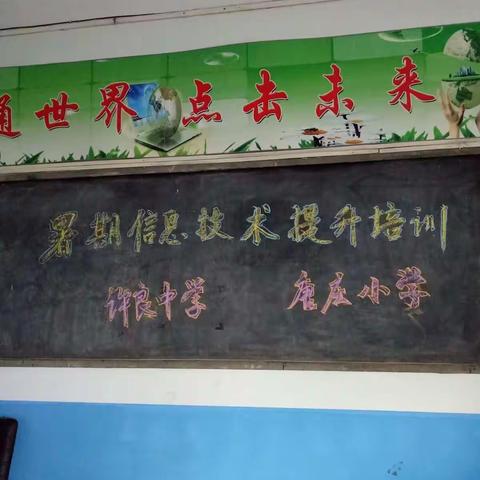 通世界 点击未来
暑期信息技术提升培训
许良中学 唐庄小学